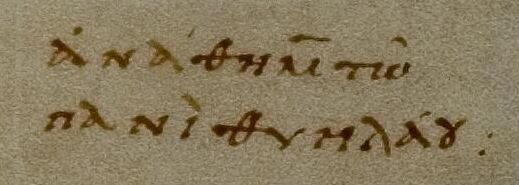 ἀνάθημ̅ τῶ
πανὶ θυηλάου :